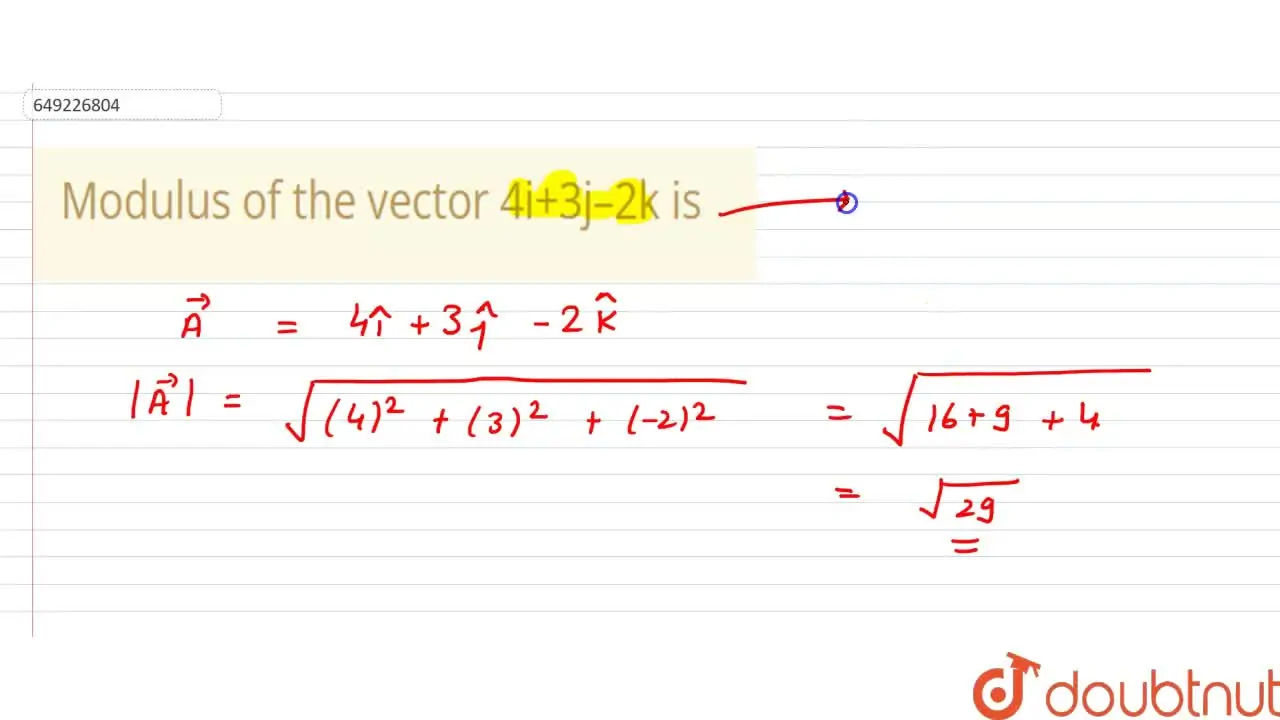 649226804
Modulus of the vector 4i+3j–2k is
A⃗ = 4î + 3ĵ - 2k̂
|A⃗| = √((4)² + (3)² + (-2)²) = √(16+9 + 4)
= √29
doubtnut